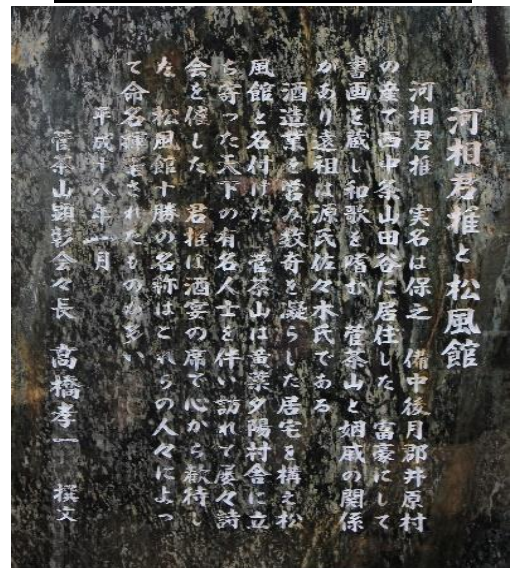 河相君推と松風館
河相君推 実名は保之 備中後月郡井原村
の産で西中条山田谷に居住した 富豪にして
書画を蔵し和歌を嗜む 菅茶山と姻戚の関係
があり遠祖は源氏佐々木氏である
酒造業を営み数奇を凝らした居宅を構え松
風館と名付けた 菅茶山は黄葉夕陽村舎に立
ち寄った天下の有名人士を伴い訪れて屡々詩
会を催した 君推は酒宴の席で心から歓待し
た 松風館十勝の名称はこれらの人々によっ
て命名揮毫されたものも多い
平成十八年一月
菅茶山顕彰会々長 高橋孝一 撰文